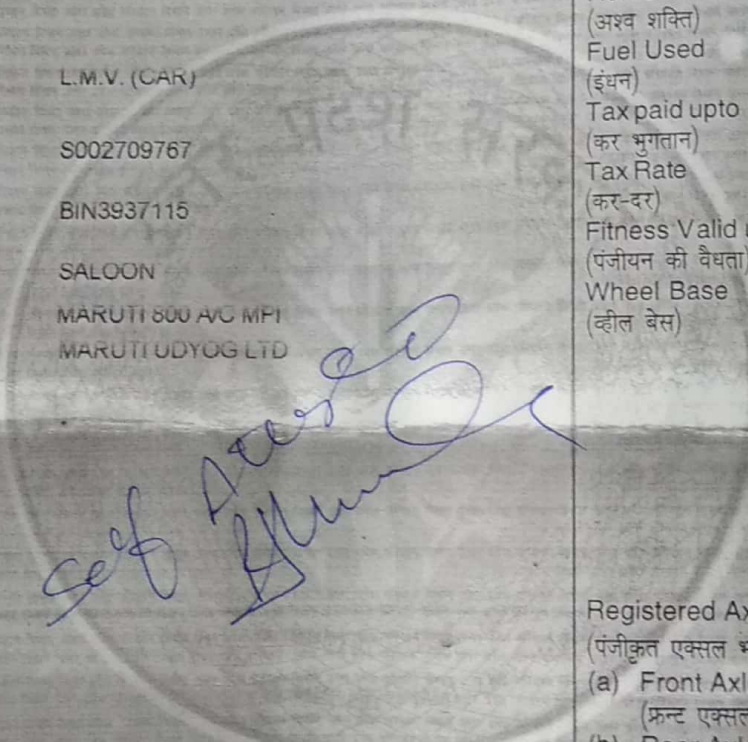 L.M.V. (CAR)
S002709767
BIN3937115
SALOON
MARUTI 800 A/C MPI
MARUTI UDYOG LTD
Self Attested
(अश्व शक्ति)
Fuel Used
(इंधन)
Tax paid upto
(कर भुगतान)
Tax Rate
(कर-दर)
Fitness Valid
(पंजीयन की वैधता)
Wheel Base
(व्हील बेस)
Registered Ax
(पंजीकृत एक्सल भ
(a) Front Axl
(फ्रन्ट एक्सल
उत्तर प्रदेश सरकार